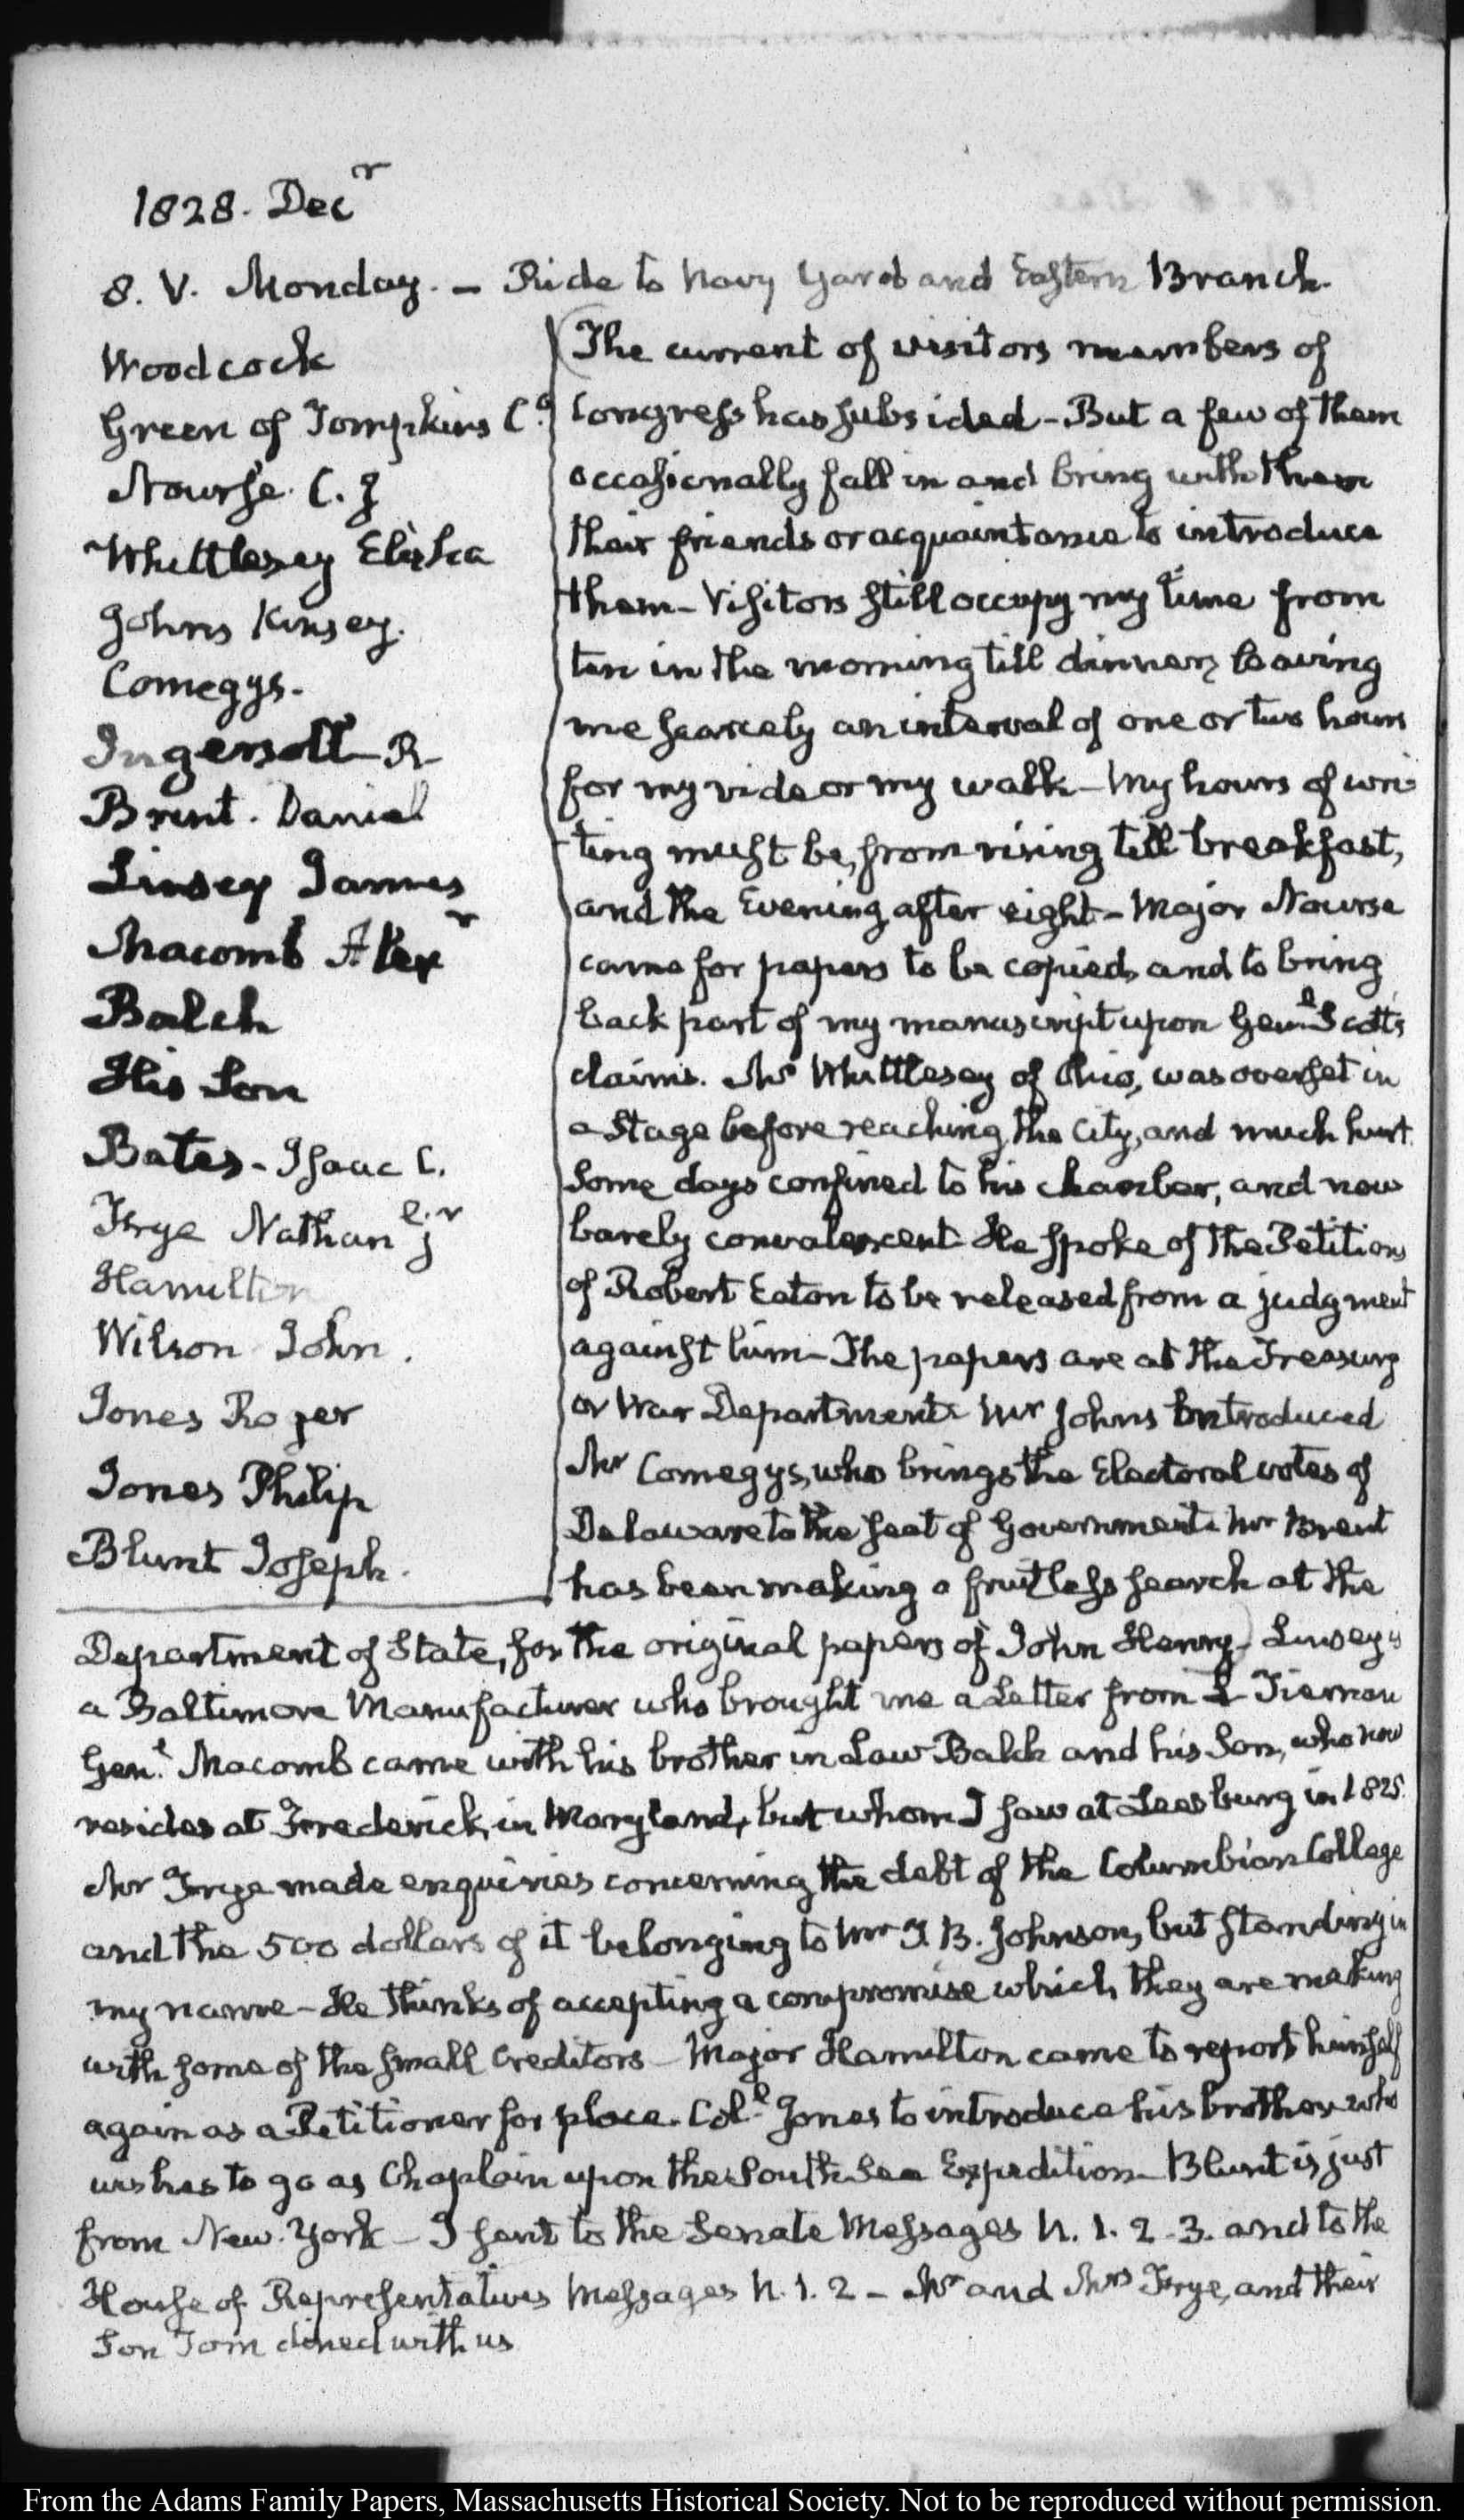 1828. Decr
8. V. Monday. – Ride to Navy Yard and Eastern Branch.
Woodcock
Green of Tompkins Co.
Nourse. C. J
Whittlesey Elisha
Johns Kinsey.
Comegys.
Ingersoll – R
Brent. Daniel
Linsey James
Macomb Alexr
Balch
His Son
Bates – Isaac C.
Frye Nathanl jr
Hamilton
Wilson John.
Jones Roger
Jones Philip
Blunt Joseph.
The current of visitors members of
Congress has subsided – But a few of them
occasionally fall in and bring with them
their friends or acquaintance to introduce
them – Visitors still occupy my time from
ten in the morning till dinner, leaving
me scarcely an interval of one or two hours
for my ride or my walk – My hours of wri-
ting must be, from rising till breakfast,
and the Evening after eight – Major Nourse
came for papers to be copied, and to bring
back part of my manuscript upon Genl Scott's
claims. Mr Whittlesey of Ohio, was overset in
a Stage before reaching the City, and much hurt.
Some days confined to his chamber, and now
barely convalescent – He spoke of the Petition
of Robert Eaton to be released from a judgment
against him – The papers are at the Treasury
or War Department. Mr Johns introduced
Mr Comegys, who brings the Electoral votes of
Delaware to the seat of Government. Mr Brent
has been making a fruitless search at the
Department of State, for the original papers of John Henry – Linsey is
a Baltimore Manufacturer who brought me a Letter from L Tiernan
Genl Macomb came with his brother in Law Balch and his Son, who now
resides at Frederick, in Maryland, but whom I saw at Leesburg in 1825.
Mr Frye made enquiries concerning the debt of the Columbian College
and the 500 dollars of it belonging to Mr T. B. Johnson, but standing in
my name – He thinks of accepting a compromise which they are making
with some of the small Creditors – Major Hamilton came to report himself
again as a Petitioner for place. Coll Jones to introduce his brother who
wishes to go as Chaplain upon the South Sea Expedition – Blunt is just
from New York – I sent to the Senate Messages N. 1. 2. 3. and to the
House of Representatives Messages N. 1. 2 – Mr and Mrs Frye, and their
Son Tom dined with us
From the Adams Family Papers, Massachusetts Historical Society. Not to be reproduced without permission.